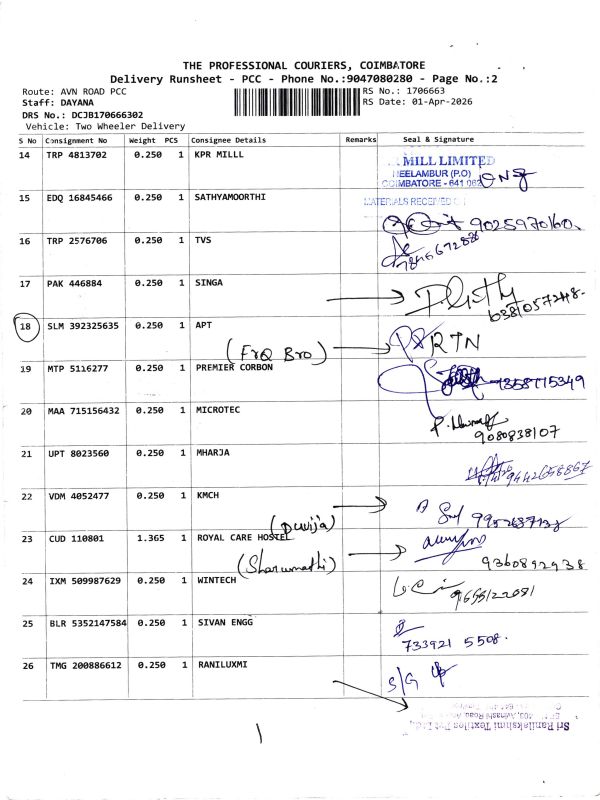 THE PROFESSIONAL COURIERS, COIMBATORE
Delivery Runsheet - PCC - Phone No.:9047080280 - Page No.:2
Route: AVN ROAD PCC
RS No.: 1706663
Staff: DAYANA
RS Date: 01-Apr-2026
DRS No.: DCJB170666302
Vehicle: Two Wheeler Delivery
S No Consignment No Weight PCS Consignee Details Remarks Seal & Signature
14 TRP 4813702 0.250 1 KPR MILLL
MILL LIMITED
NEELAMBUR (P.O)
COIMBATORE - 641 062
MATERIALS RECEIVED
15 EDQ 16845466 0.250 1 SATHYAMOORTHI
9025970160
16 TRP 2576706 0.250 1 TVS
17 PAK 446884 0.250 1 SINGA
18 SLM 392325635 0.250 1 APT
RTN
(FrQ Bro)
19 MTP 5116277 0.250 1 PREMIER CORBON
7358775349
20 MAA 715156432 0.250 1 MICROTEC
9080838107
21 UPT 8023560 0.250 1 MHARJA
9442658867
22 VDM 4052477 0.250 1 KMCH
(Duvija)
23 CUD 110801 1.365 1 ROYAL CARE HOSTEL
(Sharumathi)
9360892938
24 IXM 509987629 0.250 1 WINTECH
9655122081
25 BLR 5352147584 0.250 1 SIVAN ENGG
733921 5508.
26 TMG 200886612 0.250 1 RANILUXMI
S/G
Sri Ranilakshmi Textiles Pvt Ltd.,
403, Avinashi Road